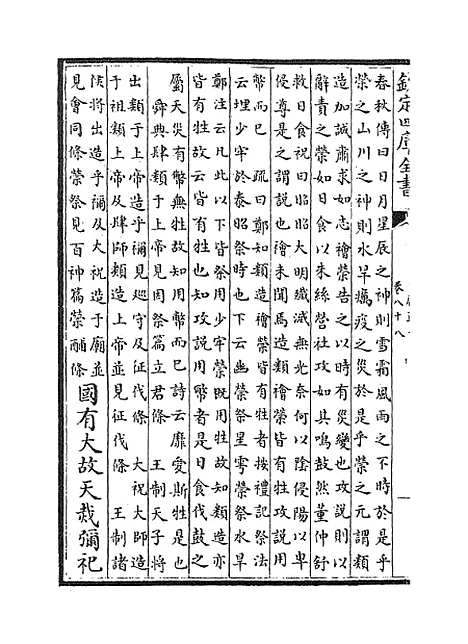 欽定四庫全書
卷八十八
春秋傳曰日月星辰之神則雪霜風雨之不時於是乎
禜之山川之神則水旱癘疫之災於是乎禜之元謂類
造加誠肅求如志禬禜告之以時有災變也攻說則以
辭責之禜如日食以朱絲營社攻如其鳴鼓然董仲舒
救日食祝曰昭昭大明瀸滅無光奈何以陰侵陽以卑
侵尊是之謂說也禬未聞焉造類禬禜皆有牲攻說用
幣而已　疏曰鄭知類造禬禜皆有牲者按禮記祭法
云埋少牢於泰昭祭時也下云幽禜祭星雩禜祭水旱
鄭注云凡此以下皆祭用少牢禜既用牲故知類造亦
皆有牲故云皆有牲也知攻說用幣者是日食伐鼓之
屬天災有幣無牲故知用幣而已詩云靡愛斯牲是也
舜典肆類于上帝見因祭篇立君條　王制天子將
出類于上帝造乎禰見巡守及征伐條　大祝大師造
于祖類上帝及肆師類造上帝並見征伐條　王制諸
侯將出造乎禰及大祝造于廟並
見會同條禜祭見百神篇禜酺條
國有大故天烖彌祀